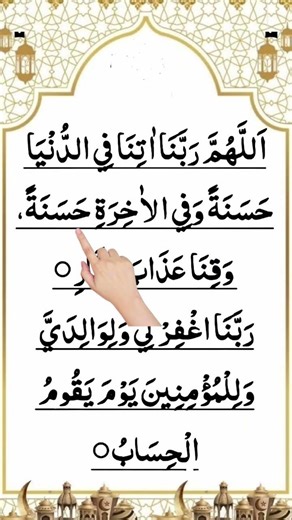 اَللّٰهُمَّ رَبَّنَا اٰتِنَا فِي الدُّنْيَا
حَسَنَةً وَفِي الْاٰخِرَةِ حَسَنَةً،
وَقِنَا عَذَابَ
رَبَّنَا اغْفِرْ لِيْ وَلِوَالِدَيَّ
وَلِلْمُؤْمِنِينَ يَوْمَ يَقُومُ
الْحِسَابُ